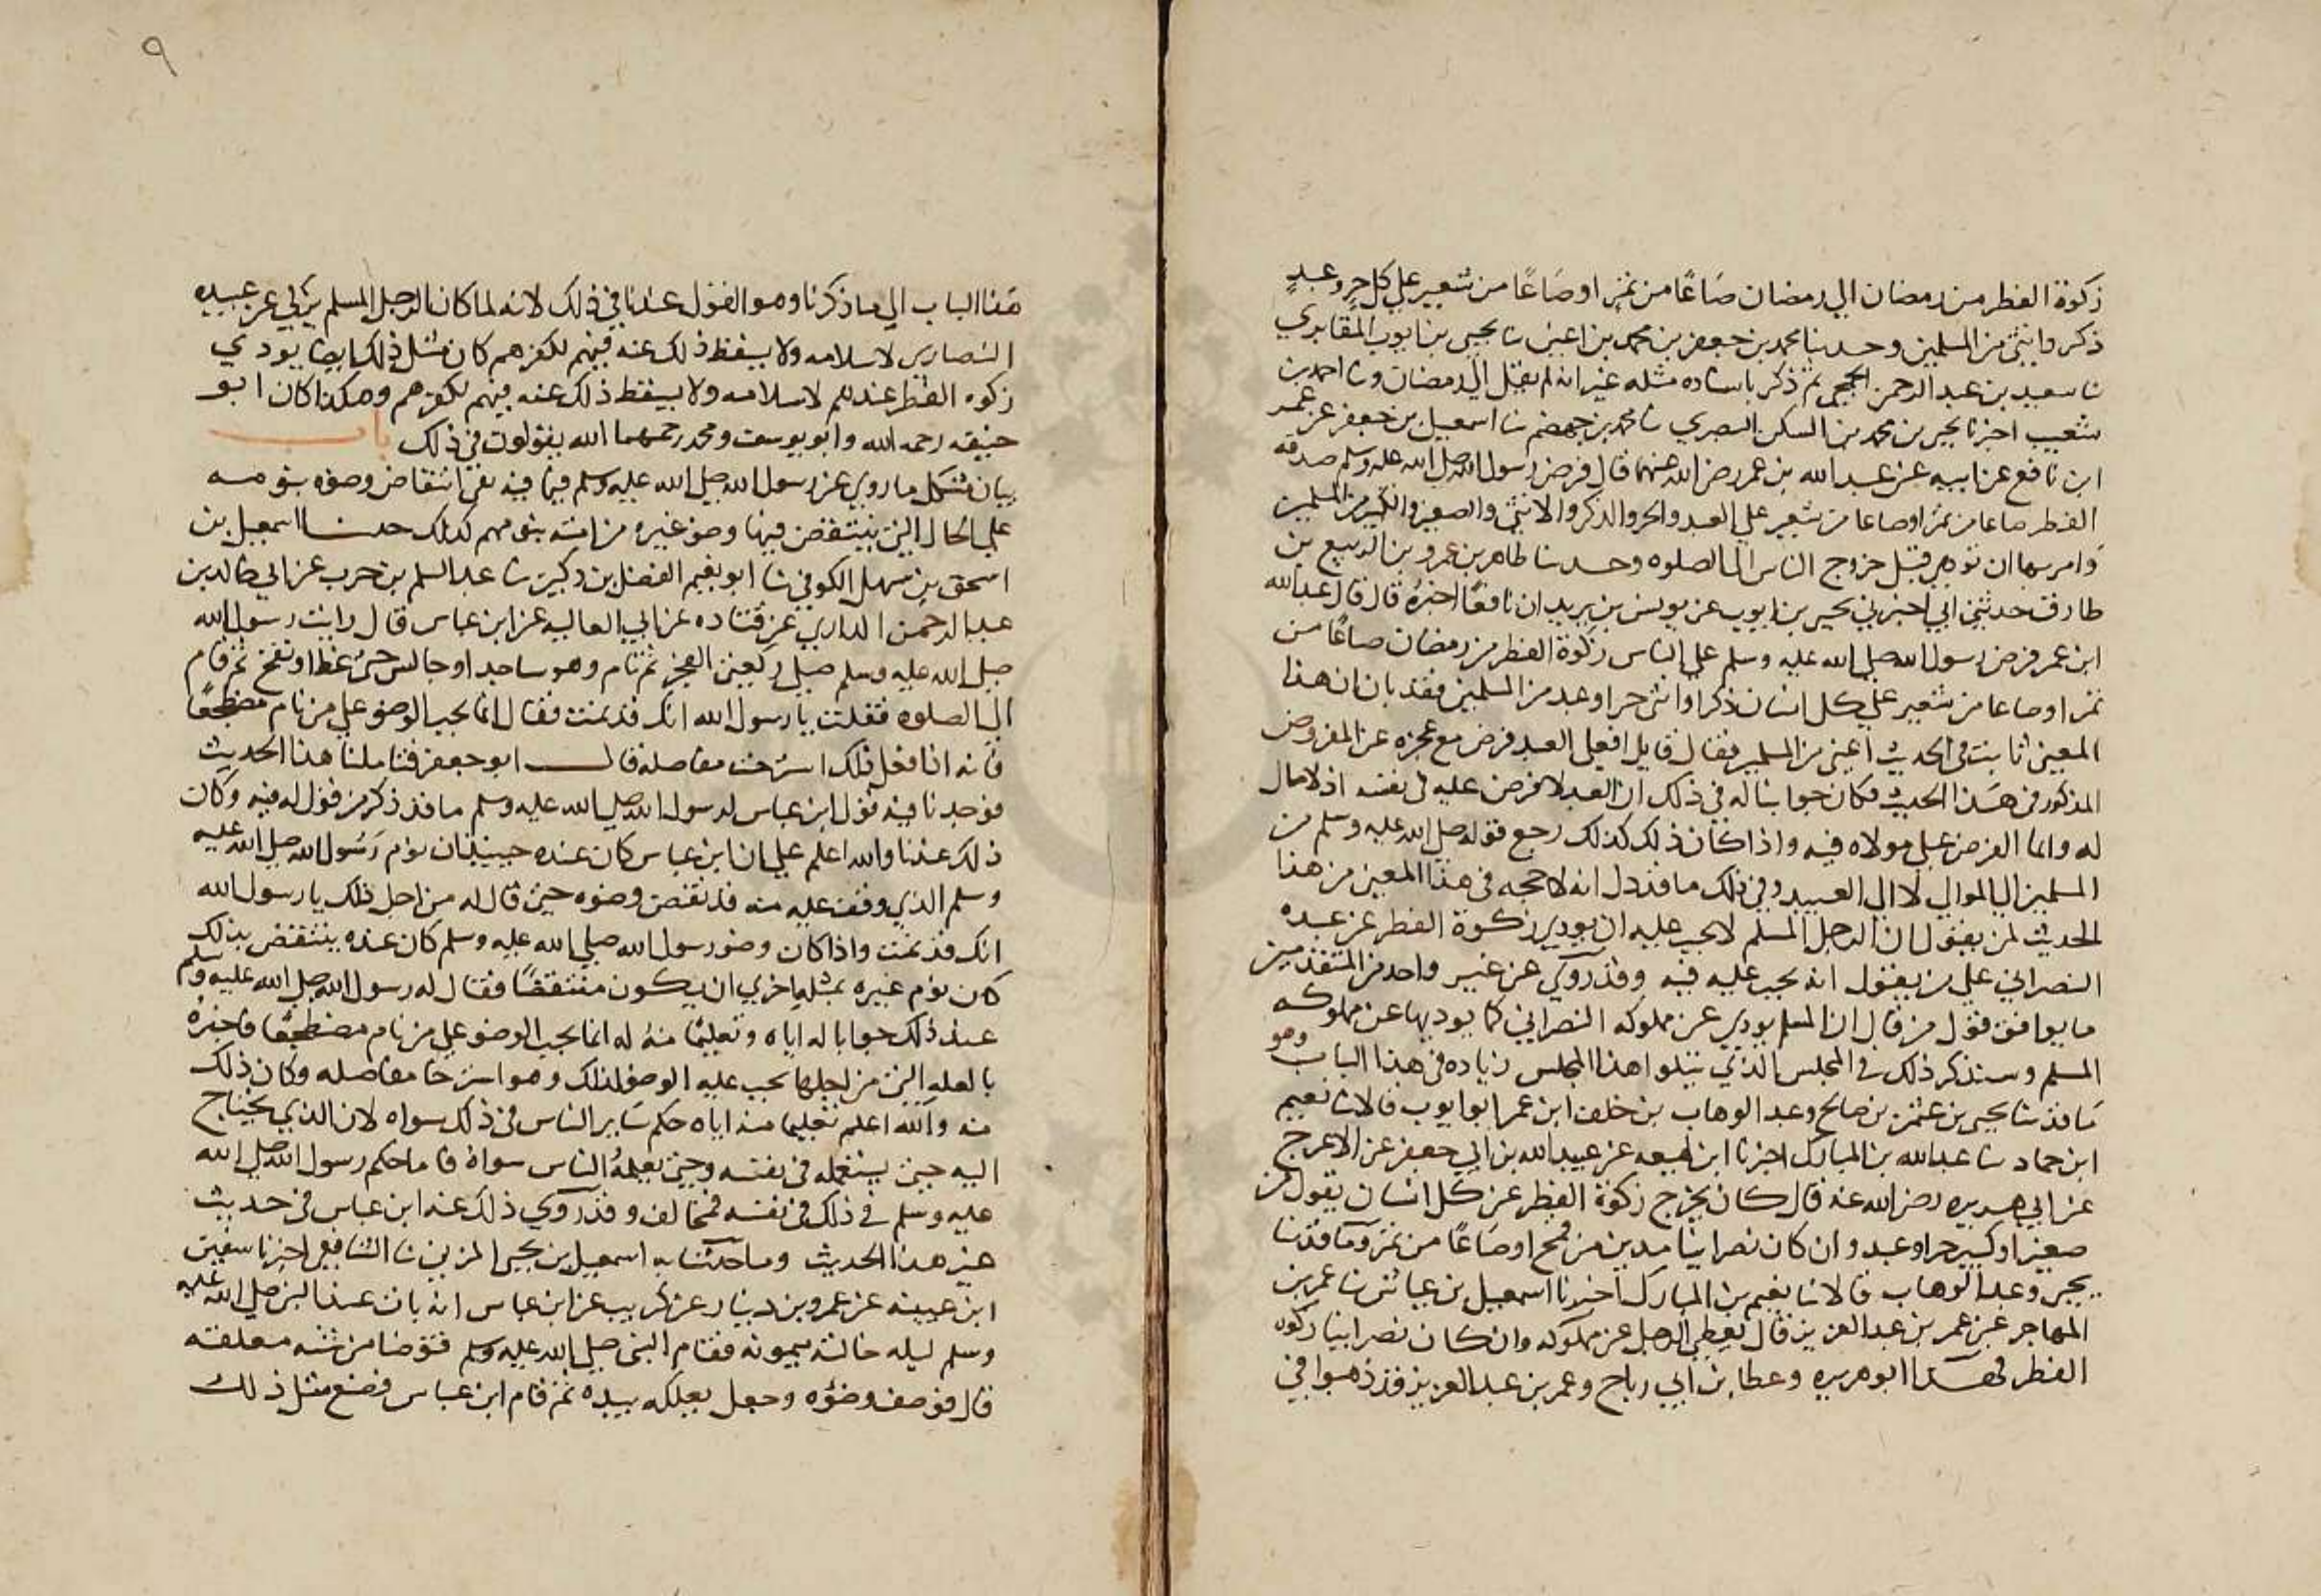 زكوة الفطر من رمضان الي رمضان صاعًا من تمر او صاعًا من شعير علي كل حر وعبد
ذكر وانثي من المسلمين وحدثنا محمد بن جعفر بن محمد بن اعين نا يحيي بن ايوب المقابري
نا سعيد بن عبد الرحمن الجمحي ثم ذكر باسناده مثله غير انه لم يقل الي رمضان ونا احمد بن
شعيب اخبرنا يحيي بن محمد بن السكن البصري نا محمد بن جهضم نا اسمعيل بن جعفر عن عمر
ابن نافع عن ابيه عن عبد الله بن عمر رضي الله عنهما قال فرض رسول الله صلي الله عليه وسلم صدقه
الفطر صاعا من تمر او صاعا من شعير علي العبد والحر والذكر والانثي والصغير والكبير من المسلمين
وامر بها ان تودي قبل خروج الناس الي الصلوه وحدثنا طاهر بن عمرو بن الربيع بن
طارق حدثني ابي اخبرني يحيي بن ايوب عن يونس بن يزيد ان نافعًا اخبره قال قال عبد الله
ابن عمر فرض رسول الله صلي الله عليه وسلم علي الناس زكوة الفطر من رمضان صاعًا من
تمر او صاعا من شعير علي كل انسان ذكر او انثي حر او عبد من المسلمين فقد بان ان هذا
المعني ثابت في الحديث اعني من المسلمين فقال قايل افعلي العبد فرض مع عجزه عن المفروض
المذكور في هذا الحديث فكان جوابنا له في ذلك ان العبد لا فرض عليه في نفسه اذ لا مال
له وانما الفرض علي مولاه فيه واذا كان ذلك كذلك رجع قوله صلي الله عليه وسلم من
المسلمين الي الموالي لا الي العبيد وفي ذلك ما قد دل انه لا حجه في هذا المعني من هذا
الحديث لمن يقول ان الرجل المسلم لا يجب عليه ان يودي زكوة الفطر عن عبده
النصراني علي من يقول انه يجب عليه فيه وقد روي عن غير واحد من المتقدمين
ما يوافق قول من قال ان المسلم يودي عن مملوكه النصراني كما يوديها عن مملوكه
المسلم وسنذكر ذلك في المجلس الذي يتلوا هذا المجلس زياده في هذا الباب وهو
ما قد نا يحيي بن عثمن بن صالح وعبد الوهاب بن خلف ابن عمر ابو ايوب قالا نا نعيم
ابن حماد نا عبد الله بن المبارك اخبرنا ابن لهيعه عن عبيد الله بن ابي جعفر عن الاعرج
عن ابي هريره رضي الله عنه قال كان يخرج زكوة الفطر عن كل انسان يقول من
صغير او كبير حر او عبد وان كان نصرانيا مدين من قمح او صاعًا من تمر وما قد نا
يحيي وعبد الوهاب قالا نا نعيم بن المبارك اخبرنا اسمعيل بن عياش نا عمر بن
المهاجر عن عمر بن عبد العزيز قال يعطي الرجل عن مملوكه وان كان نصرانيا زكوه
الفطر فهذا ابو هريره وعطا بن ابي رباح وعمر بن عبد العزيز قد ذهبوا في
٩
هذا الباب الي ما ذكرنا وهو القول عندنا في ذلك لانه لما كان الرجل المسلم يزكي عن عبيده
النصاري لاسلامه ولا يسقط ذلك عنه فيهم لكفرهم كان مثل ذلك ايضا يودي
زكوه الفطر عندهم لاسلامه ولا يسقط ذلك عنه فيهم لكفرهم وهكذا كان ابو
حنيفه رحمه الله وابو يوسف ومحمد رحمهما الله يقولون في ذلك باب
بيان مشكل ما روي عن رسول الله صلي الله عليه وسلم فيما فيه نفي انتقاض وضوه بنومه
علي الحال التي ينتقض فيها وضو غيره من امته بنومهم كذلك حدثنا اسمعيل بن
اسحق بن سهل الكوفي نا ابو نعيم الفضل بن دكين نا عبد السلم بن حرب عن ابي خالد بن
عبد الرحمن الداري عن قتاده عن ابي العاليه عن ابن عباس قال رايت رسول الله
صلي الله عليه وسلم صلي ركعتي الفجر ثم نام وهو ساجد او جالس حتي غط او نفخ ثم قام
الي الصلوه فقلت يا رسول الله انك قد نمت فقال انما يجب الوضو علي من نام مضطجعًا
فانه اذا فعل ذلك استرخت مفاصله قال ابو جعفر فتاملنا هذا الحديث
فوجدنا فيه قول ابن عباس لرسول الله صلي الله عليه وسلم ما قد ذكر من قوله له فيه وكان
ذلك عندنا والله اعلم علي ان ابن عباس كان عنده حينيذ ان نوم رسول الله صلي الله عليه
وسلم الذي وقف عليه منه قد نقض وضوه حتي قال له من اجل ذلك يا رسول الله
انك قد نمت واذا كان وضو رسول الله صلي الله عليه وسلم كان عنده ينتقض بذلك
كان نوم غيره بمثله احري ان يكون منتقضًا فقال له رسول الله صلي الله عليه وسلم
عند ذلك جوابا له اياه وتعليمًا منه له انما يجب الوضو علي من نام مضطجعًا فاخبره
بالعله التي من اجلها يجب عليه الوضو لذلك وهو استرخا مفاصله وكان ذلك
منه والله اعلم تعليما منه اياه حكم ساير الناس في ذلك سواه لان الذي يحتاج
اليه حين يستعمله في نفسه وحين يعلمه الناس سواه فاما حكم رسول الله صلي الله
عليه وسلم في ذلك في نفسه فمخالف وقد روي ذلك عنه ابن عباس في حديث
غير هذا الحديث وما حدثنا به اسمعيل بن يحيي المزني نا الشافعي اخبرنا سفين
ابن عيينه عن عمرو بن دينار عن كريب عن ابن عباس انه بات عند النبي صلي الله عليه
وسلم ليله خالته ميمونه فقام النبي صلي الله عليه وسلم فتوضا من شنه معلقه
قال فوصف وضوه وجعل يعلكه بيده ثم قام ابن عباس فصنع مثل ذلك